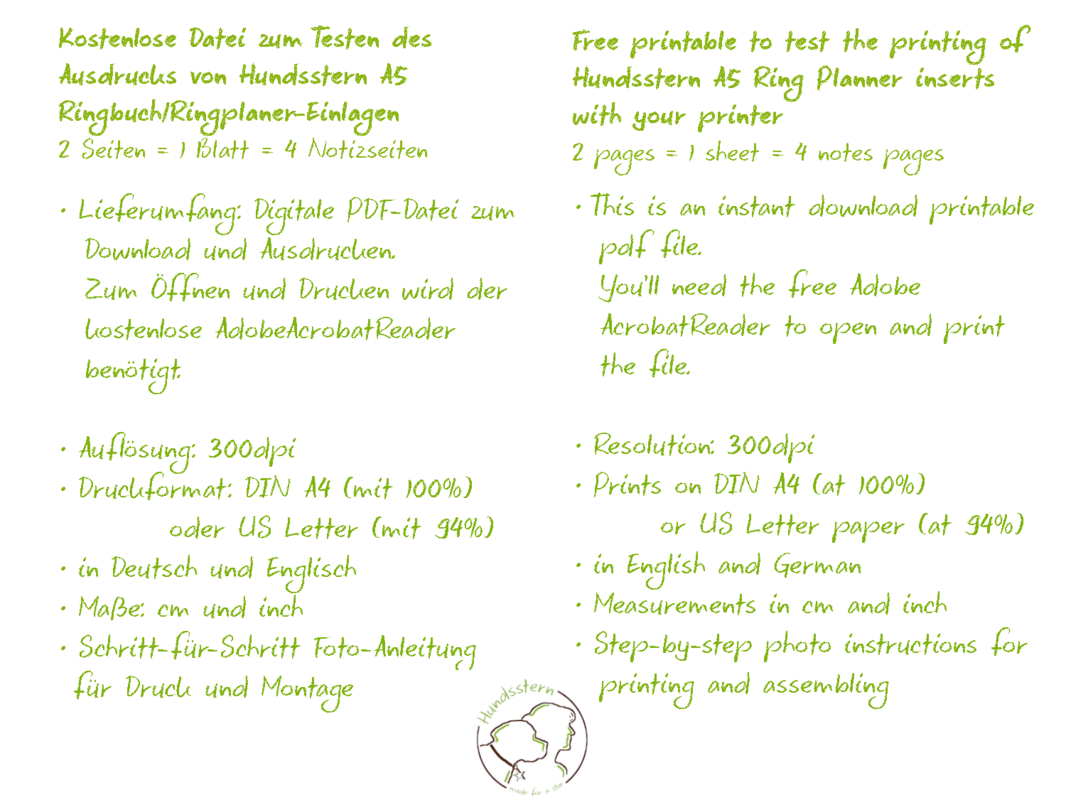 Kostenlose Datei zum Testen des
Ausdrucks von Hundsstern A5
Ringbuch/Ringplaner-Einlagen
2 Seiten = 1 Blatt = 4 Notizseiten
• Lieferumfang: Digitale PDF-Datei zum
Download und Ausdrucken.
Zum Öffnen und Drucken wird der
kostenlose AdobeAcrobatReader
benötigt.
• Auflösung: 300dpi
• Druckformat: DIN A4 (mit 100%)
oder US Letter (mit 94%)
• in Deutsch und Englisch
• Maße: cm und inch
• Schritt-für-Schritt Foto-Anleitung
für Druck und Montage
Free printable to test the printing of
Hundsstern A5 Ring Planner inserts
with your printer
2 pages = 1 sheet = 4 notes pages
• This is an instant download printable
pdf file.
You'll need the free Adobe
AcrobatReader to open and print
the file.
• Resolution: 300dpi
• Prints on DIN A4 (at 100%)
or US Letter paper (at 94%)
• in English and German
• Measurements in cm and inch
• Step-by-step photo instructions for
printing and assembling
Hundsstern
made for a star